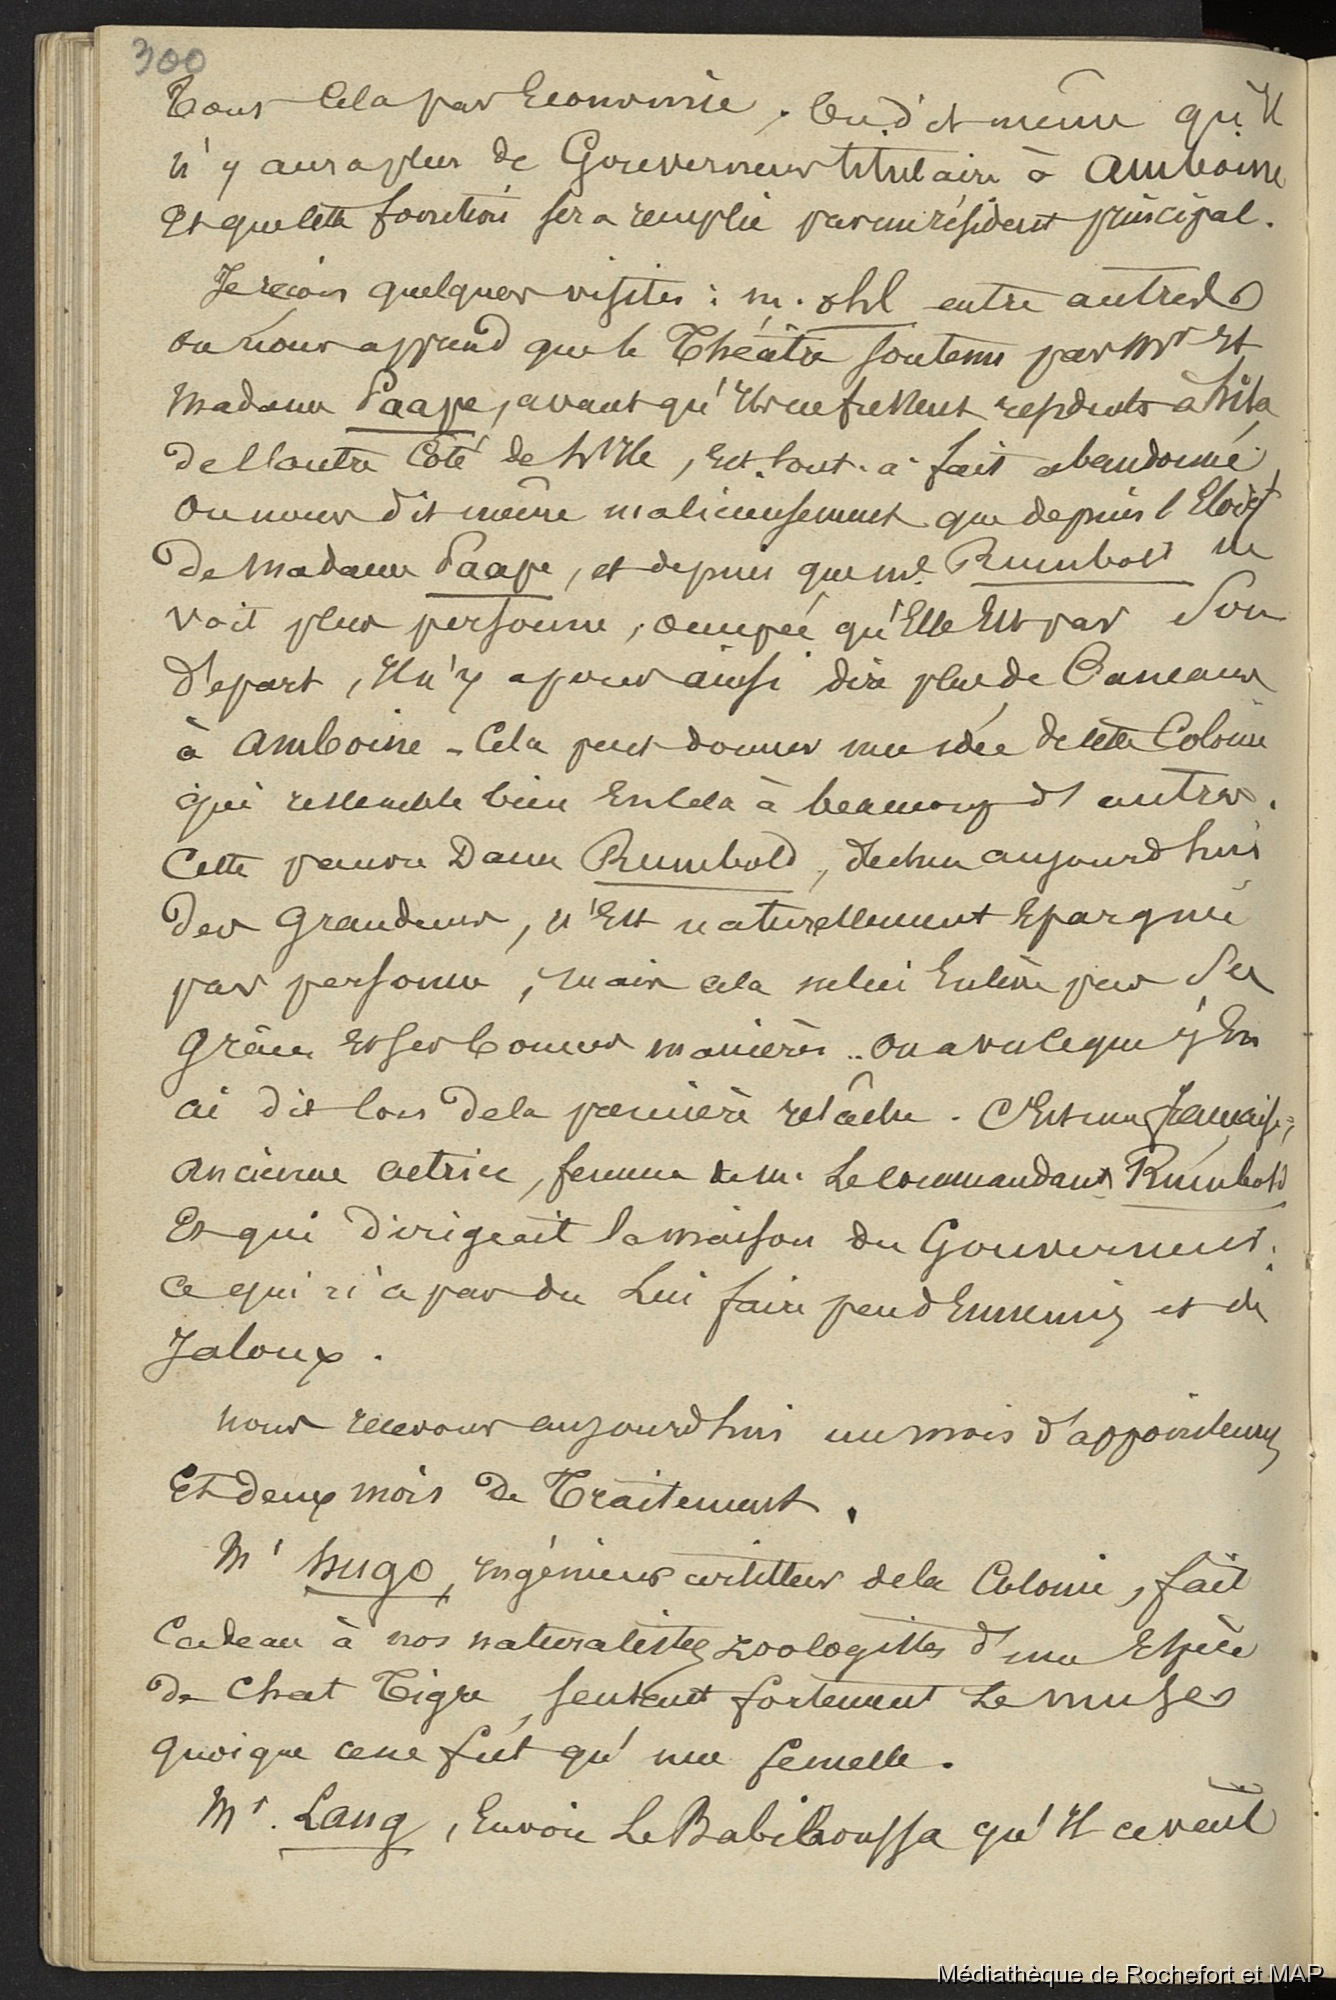 300
Tout Cela par Economie, l'on dit même qu'Il
n'y aura plus de Gouverneur titulaire à Amboine
Et que cette fonction sera remplie par un résident principal.
Je reçois quelques visites : m. ohl entre autres
on nous apprend que le Théâtre soutenu par Mr Et
Madame Paape, avant qu'Ils ne fussent résidents à hila
de l'autre Côté de l'Ile, Est tout-à-fait abandonné,
On nous dit même malicieusement que depuis l'Eloigt
De Madame Paape, et depuis que me Rumbold ne
voit plus personne, occupée qu'Elle Est par Son
départ, Il n'y a pour ainsi dire plus de Cancans
à Amboine - Cela peut donner une idée de cette Colonie
qui ressemble bien En Cela à beaucoup d'autres.
Cette pauvre Dame Rumbold, dechue aujourd'hui
Des Grandeurs, n'Est naturellement Epargnée
par personne, mais cela ne lui Enlève pas Ses
Grâces Et Ses bonnes manières .. On a vu ce que j'En
ai dit lors de la première relâche. C'Est une française,
Ancienne actrice, femme de m. Le commandant Rumbold
Et qui dirigeait la maison du Gouverneur ;
Ce qui n'a pas du Lui faire peu d'Ennemis et de
Jaloux.
Nous recevons aujourd'hui un mois d'appointems
Et deux mois De Traitement.
Mr hugo, ingénieur architecte de la Colonie, fait
Cadeau à nos naturalistes zoologistes d'une Espèce
De Chat Tigre, sentant fortement Le musc
quoique ce ne fut qu'une femelle.
Mr. Lang, Envoie Le Babiroussa qu'Il avait
Médiathèque de Rochefort et MAP